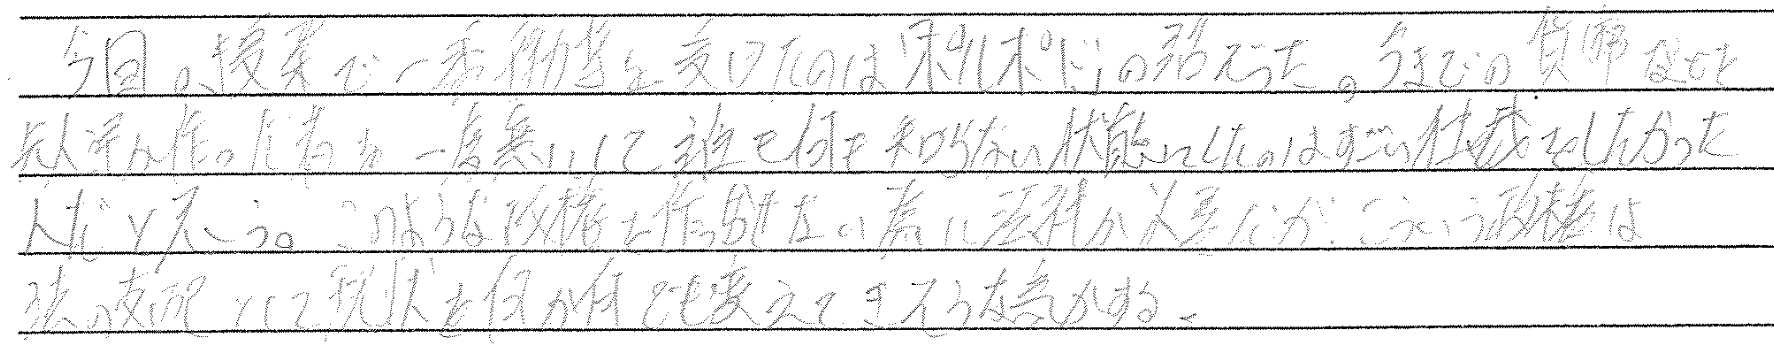 今日の授業で一番衝撃を受けたのはポルポトの話だった。今までの貨幣など
先人達が作った者が一度無にして誰も何も知らない状態にしたのはすごい仕打をしたかった
んだと思う。このような政権を作らせない為に法律が必要だが、こういう政権は
法の支配として現状を何が何でも変えてきそうな気がする。